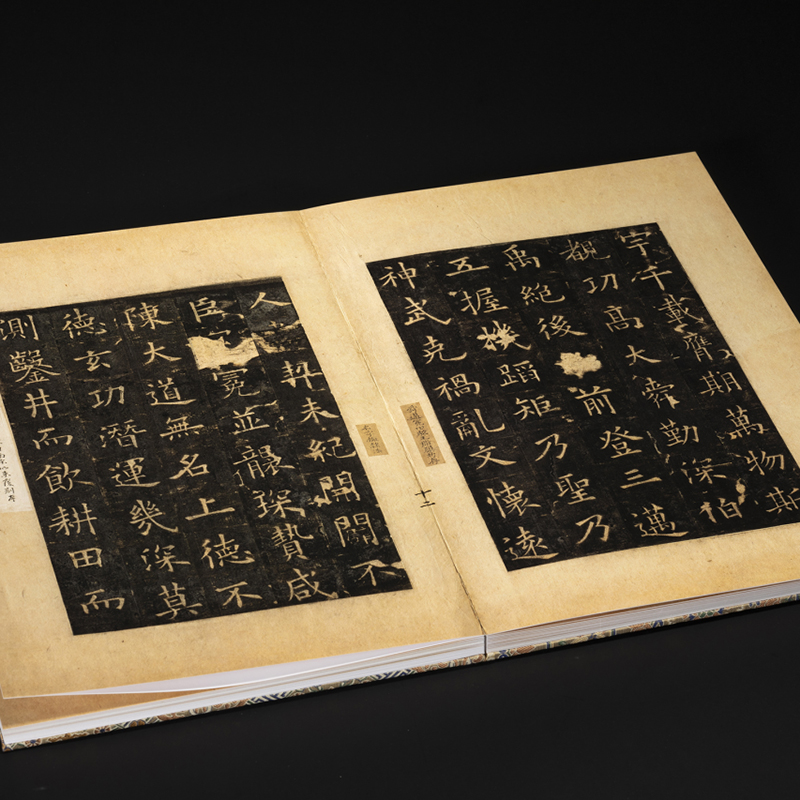 宇千載膺期萬物斯
覩功高大舜勤深柏
禹絕後前登三邁
五握機蹈矩乃聖乃
神武定禍亂文懷遠
十二
人契未紀開闢不
臣冠冕並襲琛賮咸
陳大道無名上德不
德玄功潛運幾深莫
測鑿井而飲耕田而